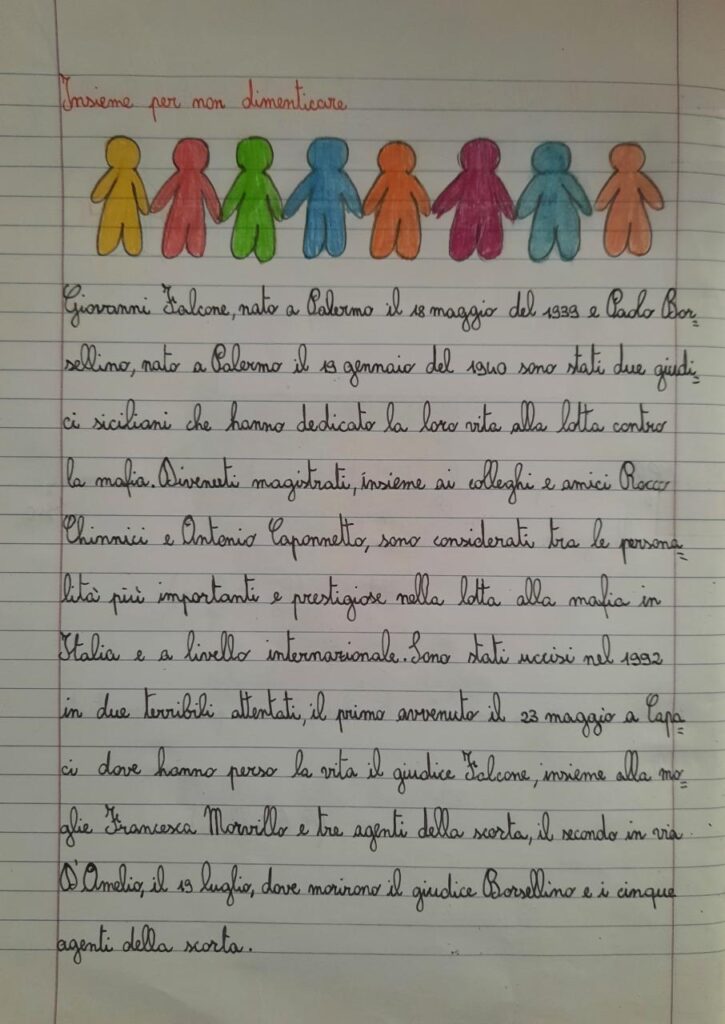 Insieme per non dimenticare
Giovanni Falcone, nato a Palermo il 18 maggio del 1939 e Paolo Bor=
sellino, nato a Palermo il 19 gennaio del 1940 sono stati due giudi=
ci siciliani che hanno dedicato la loro vita alla lotta contro
la mafia. Divenuti magistrati, insieme ai colleghi e amici Rocco
Chinnici e Antonio Caponnetto, sono considerati tra le persona=
lità più importanti e prestigiose nella lotta alla mafia in
Italia e a livello internazionale. Sono stati uccisi nel 1992
in due terribili attentati, il primo avvenuto il 23 maggio a Capa=
ci dove hanno perso la vita il giudice Falcone, insieme alla mo=
glie Francesca Morvillo e tre agenti della scorta, il secondo in via
D'Amelio, il 19 luglio, dove morirono il giudice Borsellino e i cinque
agenti della scorta.